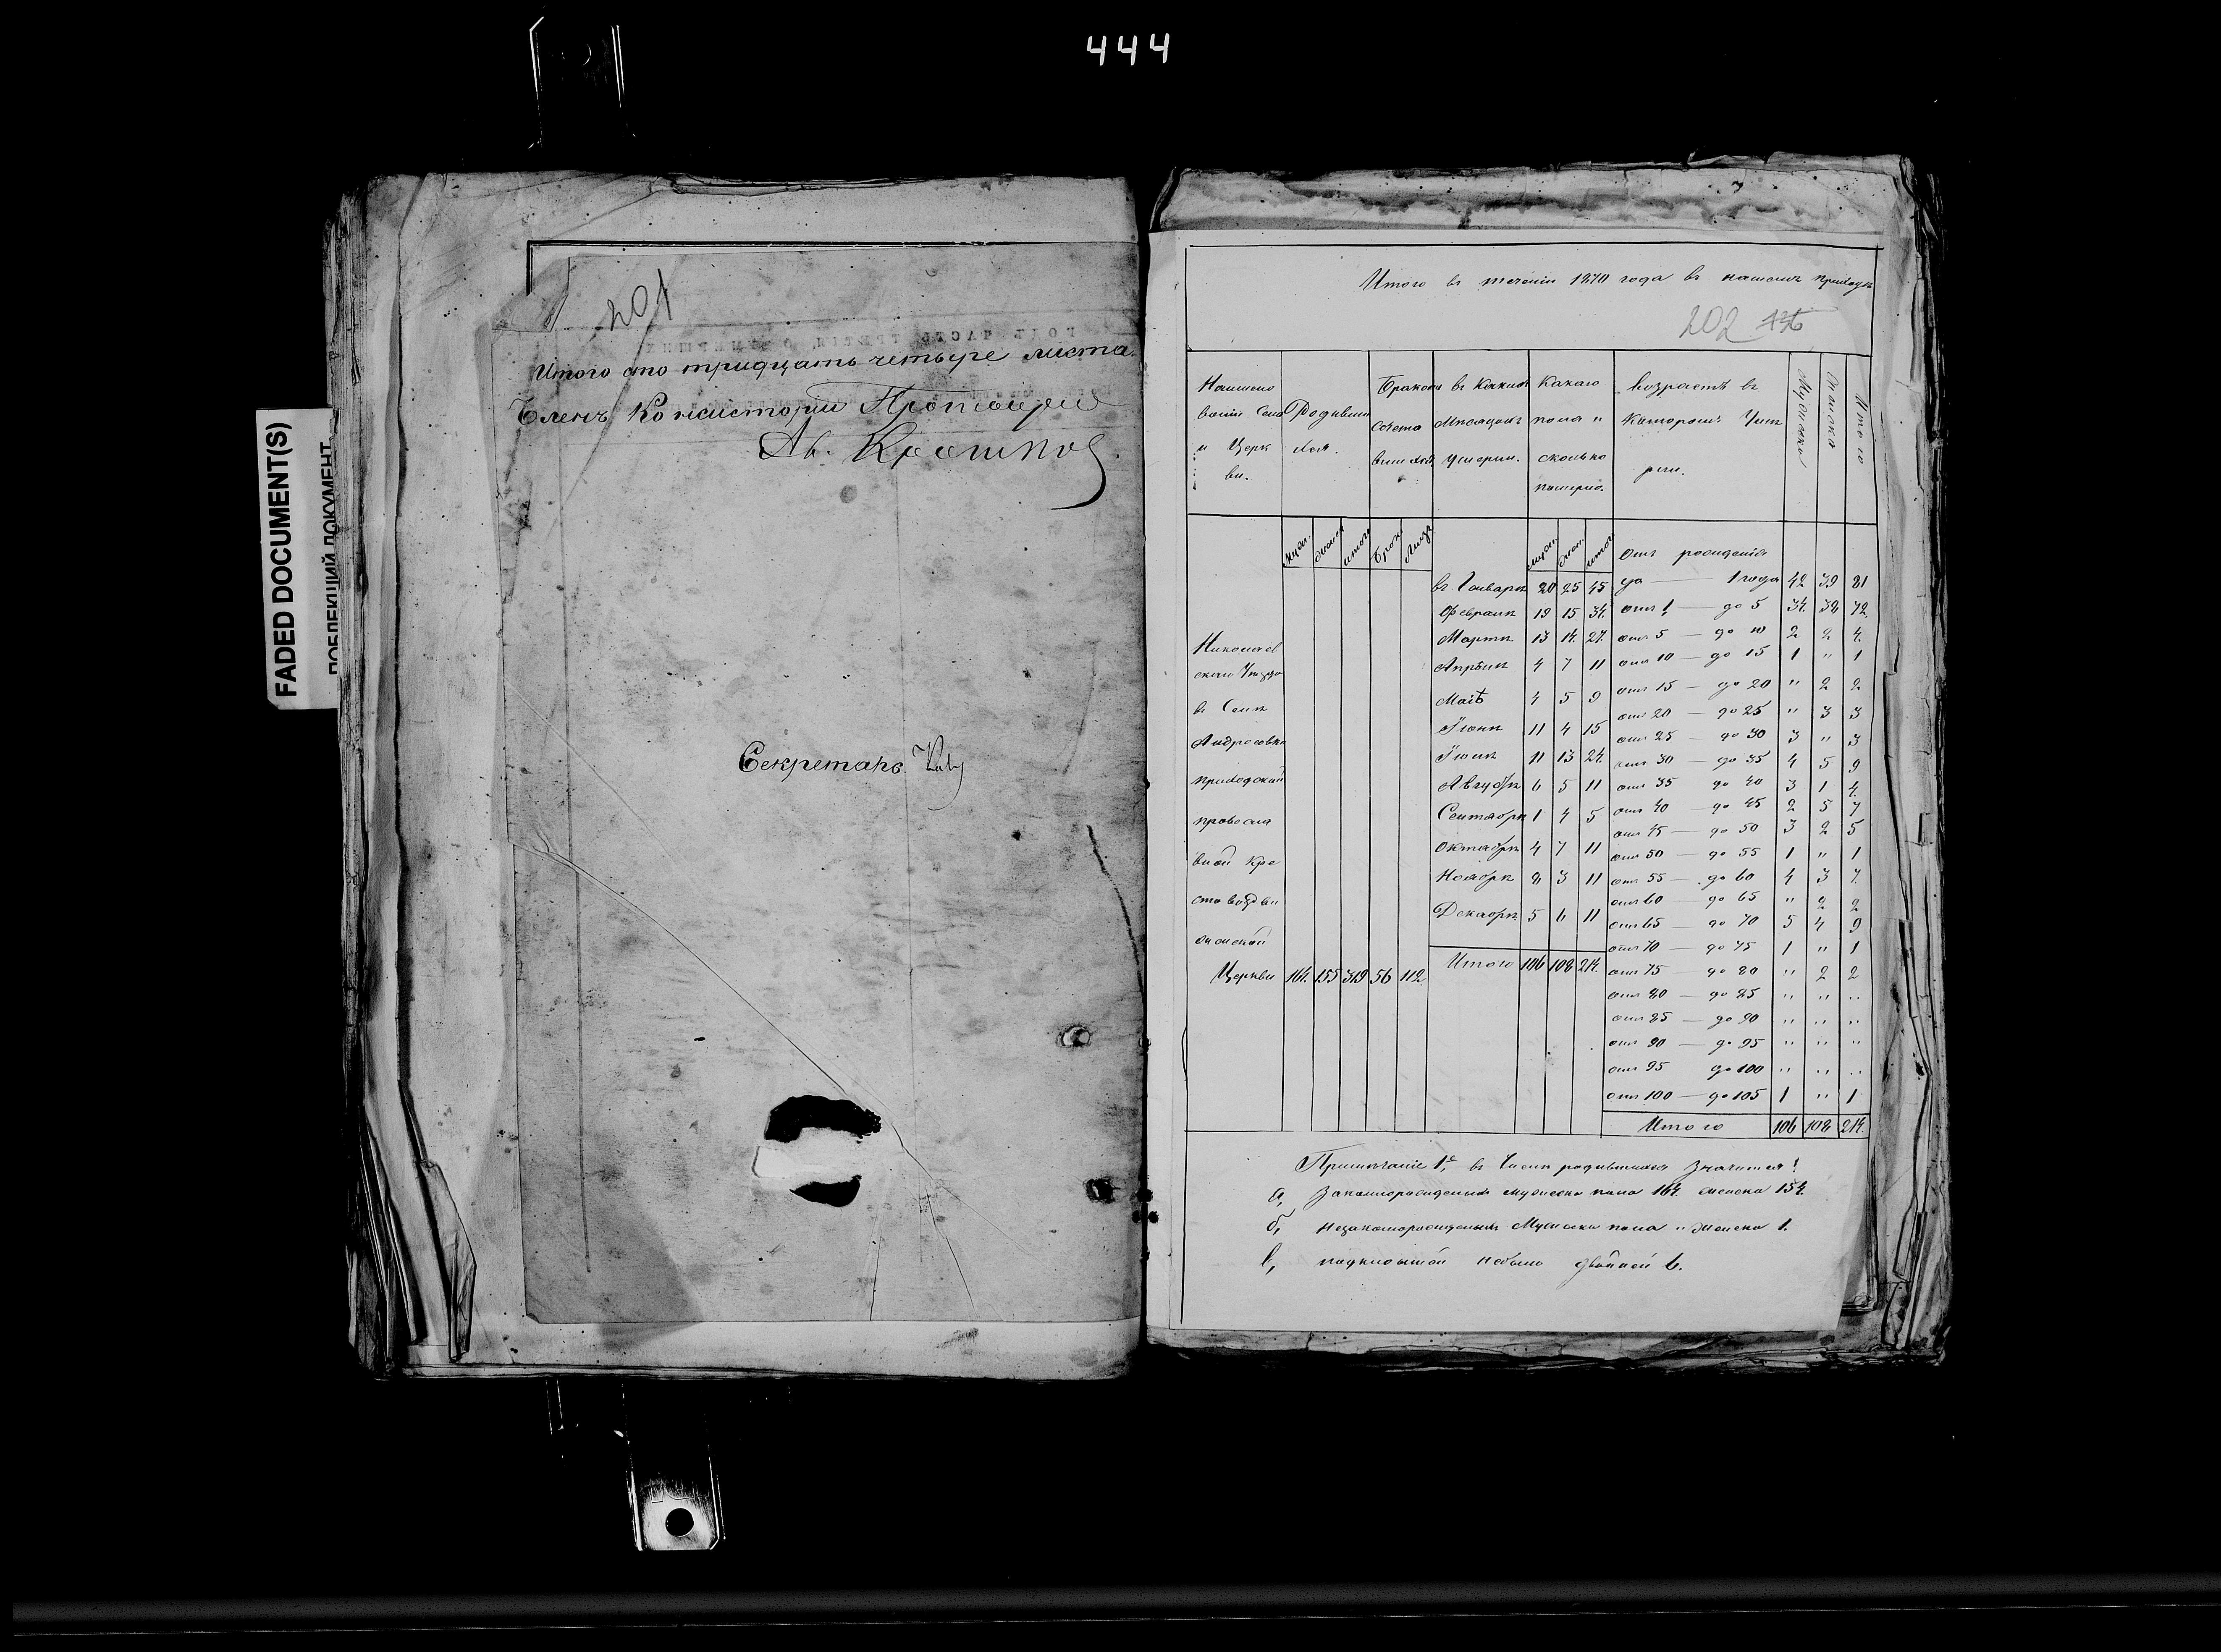 444
FADED DOCUMENT(S)
ПОБЛЕКШИЙ ДОКУМЕНТ
201
Итого сто тридцать четыре листа.
Членъ Консисторіи Протоіерей
Секретарь
Итого въ теченіи 1870 года въ нашемъ приходѣ
202
Наимено ваніе Села и Церк ви.
Родивши хся.
Браковъ Сочета вшихся
въ Какихъ Мѣсяцахъ умерли.
Какаго пола и сколько померло.
Возрастъ въ Которомъ Умер рли.
Мужеска
Женска
Итого
муж. женск итого Брак Лицъ
муж. жен. итого
Отъ рожденія
въ Январѣ 20 25 45 до — 1 года 42 39 81
Февралѣ 19 15 34. отъ 1 — до 5 34. 38 72.
Мартѣ 13 14. 27. отъ 5 — до 10 2 2 4.
Апрѣлѣ 4 7 11 отъ 10 — до 15 1 " 1
Маѣ 4 5 9 отъ 15 — до 20 " 2 2
отъ 20 — до 25 " 3 3
Іюнѣ 11 4 15 отъ 25 — до 30 3 " 3
Іюлѣ 11 13 24. отъ 30 — до 35 4 5 9
Августѣ 6 5 11 отъ 35 до 40 3 1 4.
Сентябрѣ 1 4 5 отъ 40 — до 45 2 5 7
отъ 45 — до 50 3 2 5
Октябрѣ 4 7 11 отъ 50 — до 55 1 " 1
Ноябрѣ 8 3 11 отъ 55 — до 60 4 3 7.
отъ 60 — до 65 " 2 2
Декабрѣ 5 6 11 отъ 65 до 70 5 4 9
отъ 70 — до 75 1 " 1
Итого 106 108 214. отъ 75 — до 80 " 2 2
отъ 80 — до 85 " " "
отъ 85 — до 90 " " "
отъ 90 — до 95 " " "
отъ 95 до 100 " " "
отъ 100 — до 105 1 " 1
Итого 106 108 214.
Николаев
скаго Уѣзда
въ Селѣ
Андросовкѣ
приходской
правосла
вной Кре
стовоздви
женской
Церкви 164. 155 319 56 112.
Примѣчаніе 1е, въ Числѣ родившихся Значится:
а, Законнорожденныхъ мужеска пола 164. женска 154.
б, Незаконорожденныхъ Мужеска пола " женска 1.
в, подкидышей небыло двойней 6.